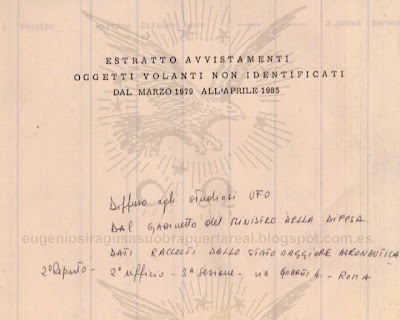 ESTRATTO AVVISTAMENTI
OGGETTI VOLANTI NON IDENTIFICATI
DAL MARZO 1979 ALL'APRILE 1985
Diffuso agli studiosi UFO
DAL GABINETTO del MINISTRO DELLA DIFESA
eugeniosiragusasuobrapuertareal.blogspot.com.es
DATI RACCOLTI DALLO STATO MAGGIORE AERONAUTICA
2° Reparto - 2° Ufficio - 3ª Sezione - via GOBETTI 4 - ROMA